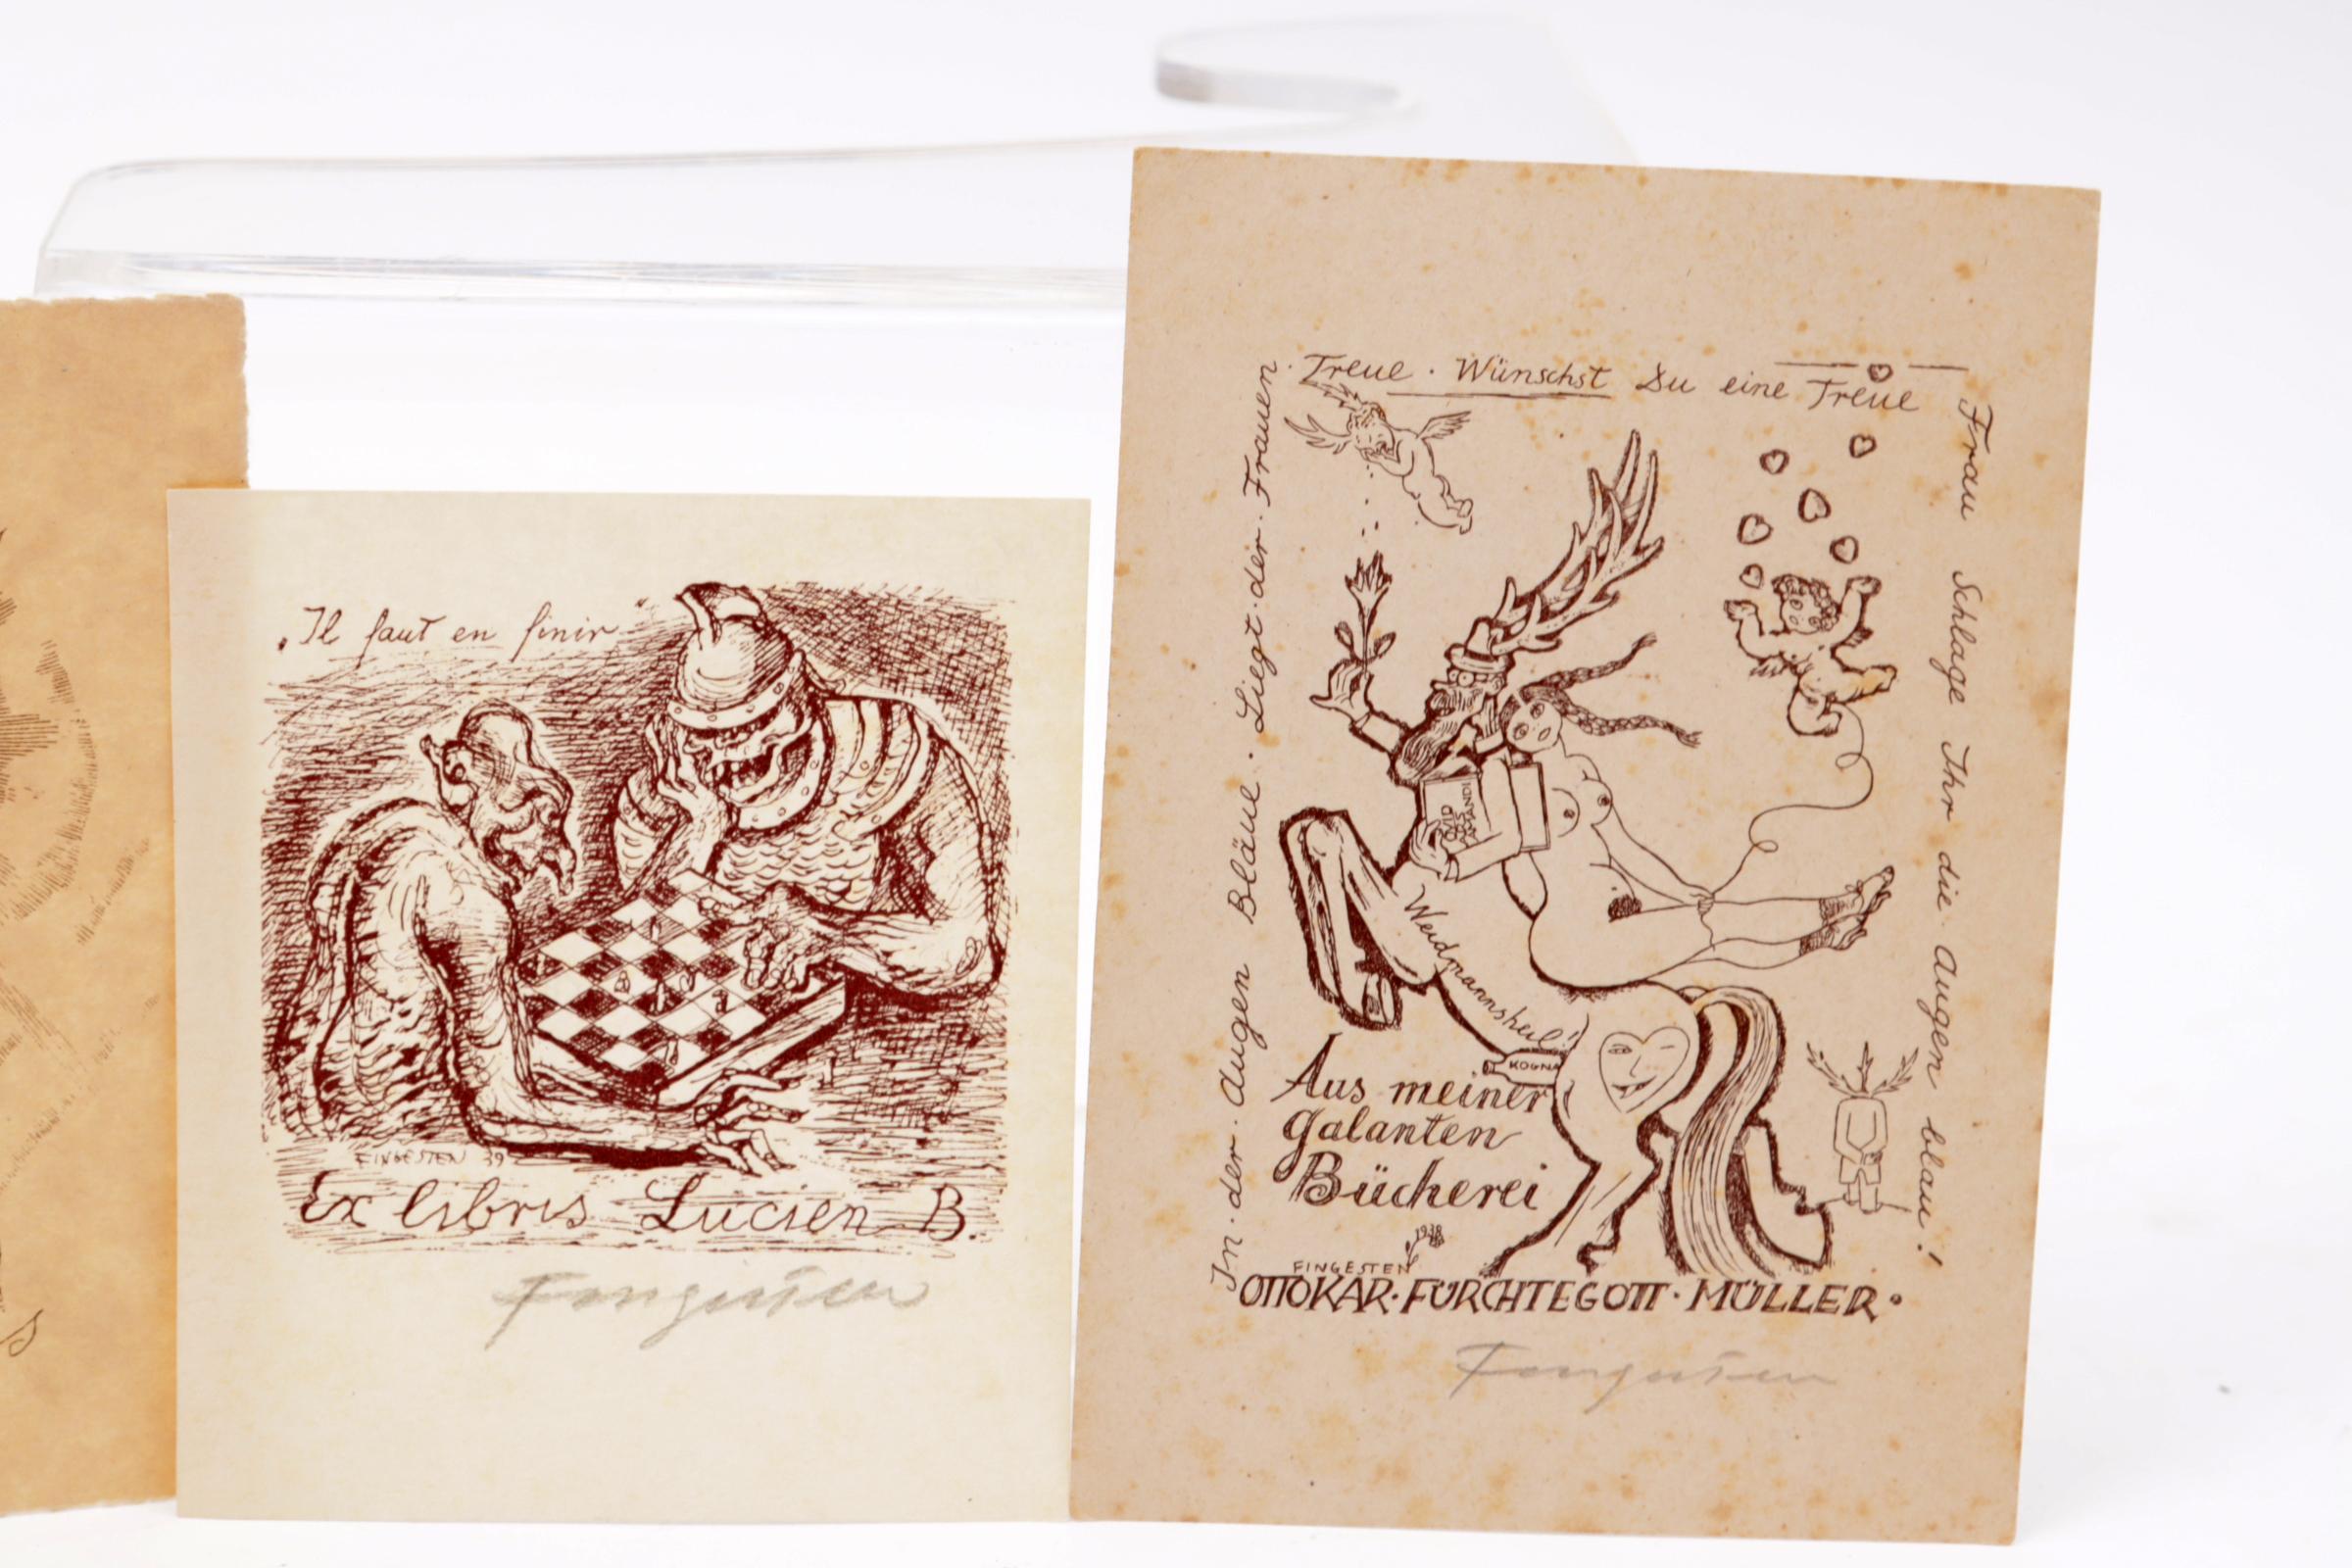 „Il faut en finir“
FINGESTEN 39
Ex libris Lucien B.
Fingesten
In · der · Augen Bläue · Liegt · der · Frauen ·
Treue · Wünschst Du eine Treue
Frau Schlage Ihr die Augen blau!
OVID
ARS
AMANDI
Weidmannsheil!
KOGNA
Aus meiner
galanten
Bücherei
1938
FINGESTEN
OTTOKAR · FÜRCHTEGOTT · MÜLLER ·
Fingesten